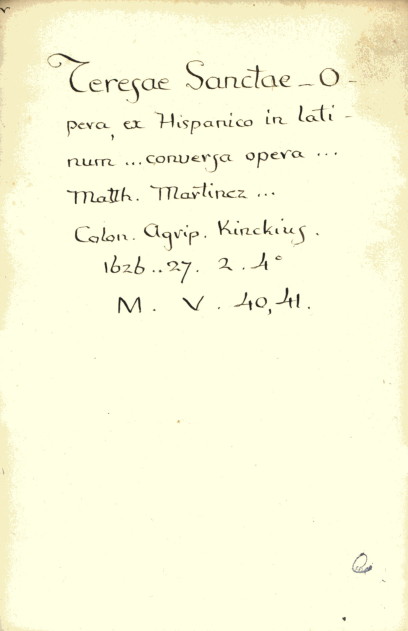 Teresae Sanctae - O-
pera, ex Hispanico in lati-
num ... conversa opera ...
Matth. Martinez ...
Colon. Agrip. Kinckius.
1626..27. 2. 4°
M. V. 40, 41.